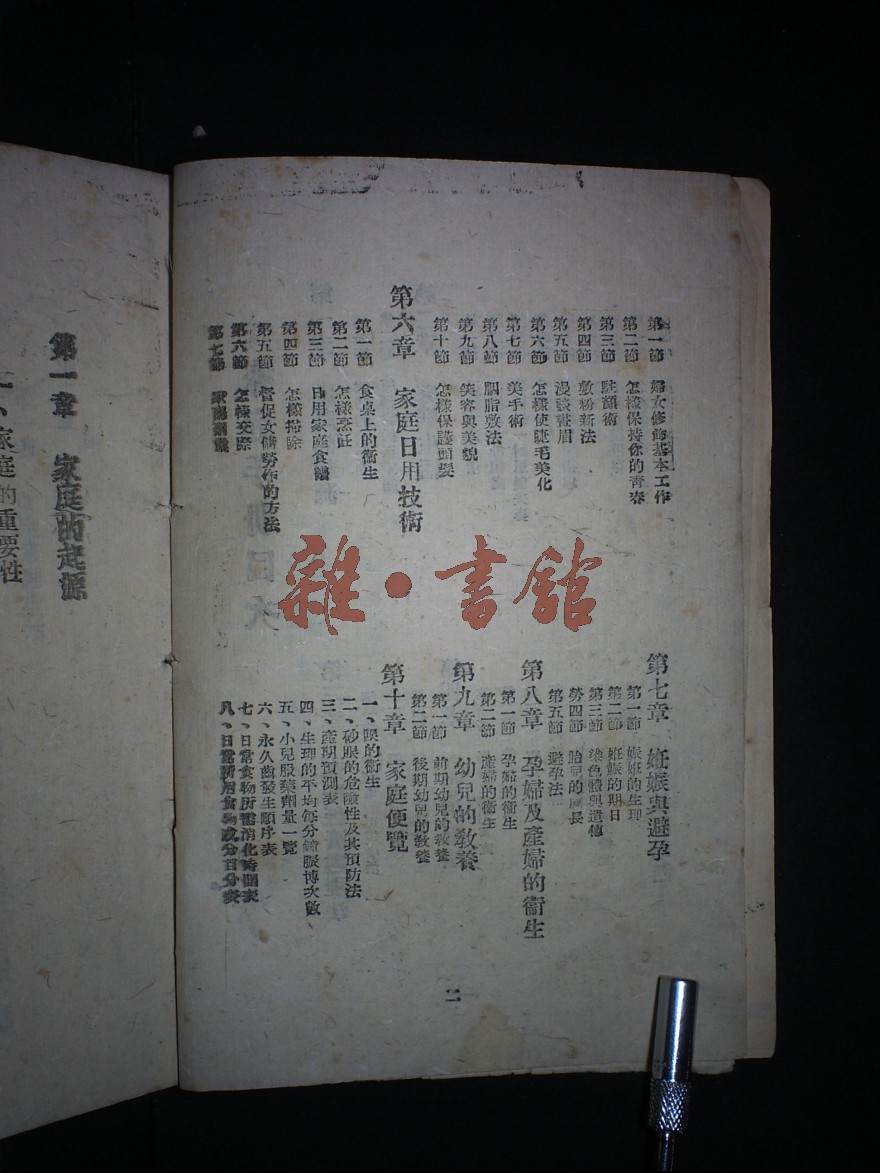 第一節 婦女修飾基本工作
第二節 怎樣保持你的青春
第三節 駐顏術
第四節 敷粉新法
第五節 漫談畫眉
第六節 怎樣使睫毛美化
第七節 美手術
第八節 胭脂敷法
第九節 笑容與美貌
第十節 怎樣保護頭髮
第六章 家庭日用技術
第一節 食桌上的衞生
第二節 怎樣烹飪
第三節 日用家庭食譜
第四節 怎樣掃除
第五節 督促女傭勞作的方法
第六節 怎樣交際
第七節
第七章 妊娠與避孕
第一節 妊娠的生理
第二節 妊娠的期日
第三節 染色體與遺傳
勞四節 胎兒的成長
第五節 避孕法
第八章 孕婦及產婦的衞生
第一節 孕婦的衞生
第二節 產婦的衞生
第九章 幼兒的教養
第一節 前期幼兒的教養
第二節 後期幼兒的教養
第十章 家庭便覽
一、眼的衞生
二、砂眼的危險性及其預防法
三、產期預測表
四、生理的平均每分鐘脈搏次數
五、小兒服藥劑量一覽
六、永久齒發生順序表
七、日常食物所需消化時間表
八、日常所用食物成分百分表
二
第一章 家庭的起源
一、家庭的重要性
雜·書舘